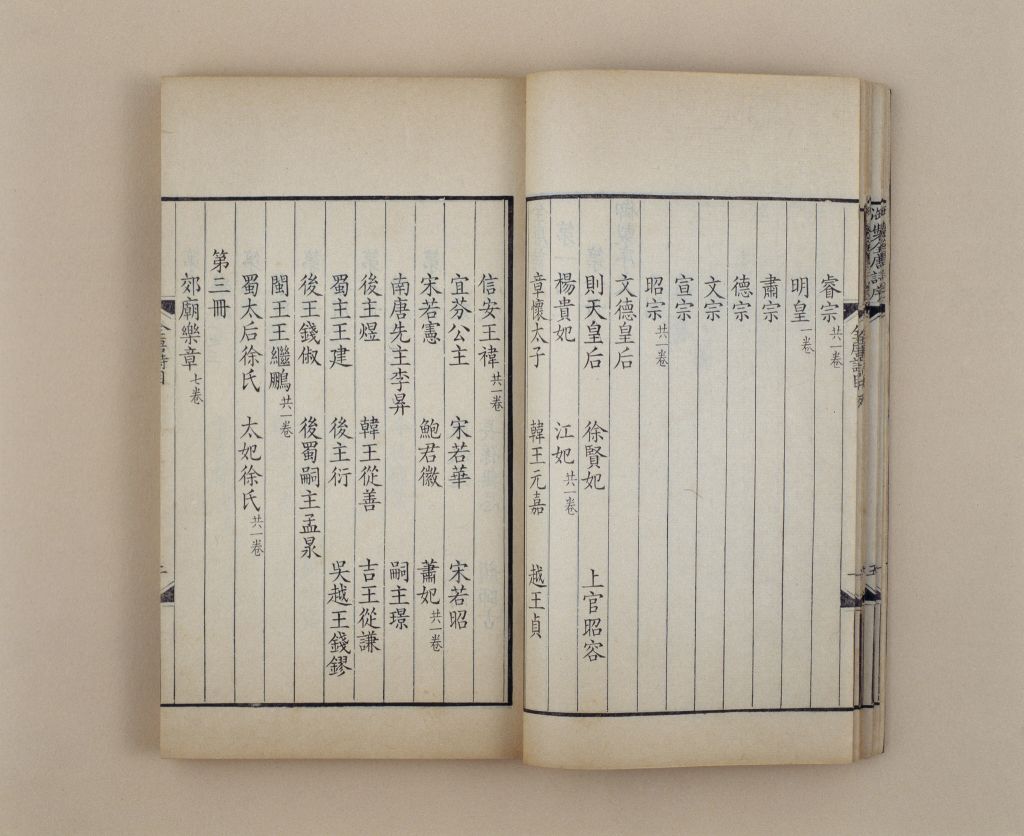 睿宗 共一卷
明皇 一卷
肅宗
德宗
文宗
宣宗
昭宗 共一卷
文德皇后
則天皇后 徐賢妃 上官昭容
楊貴妃 江妃 共一卷
章懷太子 韓王元嘉 越王貞
信安王禕 共一卷
宜芬公主 宋若華 宋若昭
宋若憲 鮑君徽 蕭妃 共一卷
南唐先主李昪 嗣主璟
後主煜 韓王從善 吉王從謙
蜀主王建 後主衍 吳越王錢鏐
後王錢俶 後蜀嗣主孟昶
閩王王繼鵬 共一卷
蜀太后徐氏 太妃徐氏 共一卷
第三冊
郊廟樂章 七卷